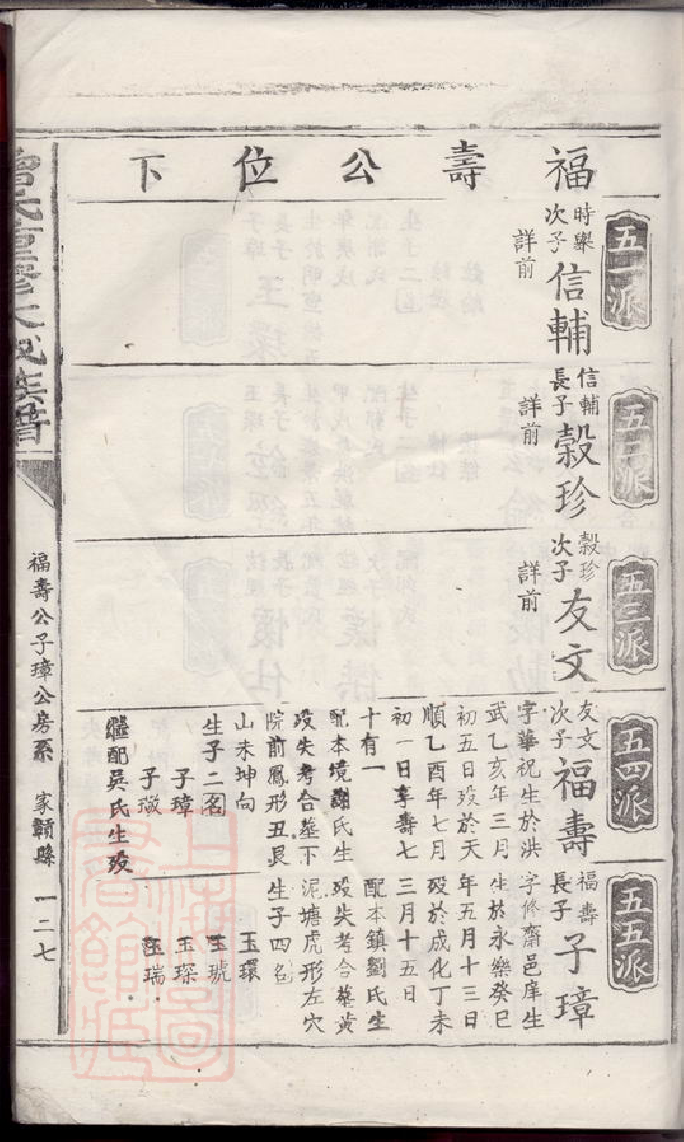 福壽公位下
五一派
時樂次子信輔
詳前
五二派
信輔長子穀珍
詳前
五三派
穀珍次子友文
詳前
五四派
友文次子福壽
字華祝生於洪
武乙亥年三月
初五日歿於天
順乙酉年七月
初一日享壽七
十有一
配本境謝氏生
歿失考合墓下
院前鳳形丑艮
山未坤向
生子二名
子璋
子璥
繼配吳氏生歿
五五派
福壽長子子璋
字修齋邑庠生
生於永樂癸巳
年五月十三日
歿於成化丁未
三月十五日
配本鎮劉氏生
歿失考合墓黃
泥塘虎形左穴
生子四名
玉環
玉琥
玉琛
玉瑞
重修
族譜
福壽公子璋公房系
家 縣
一二七
上海圖書館藏